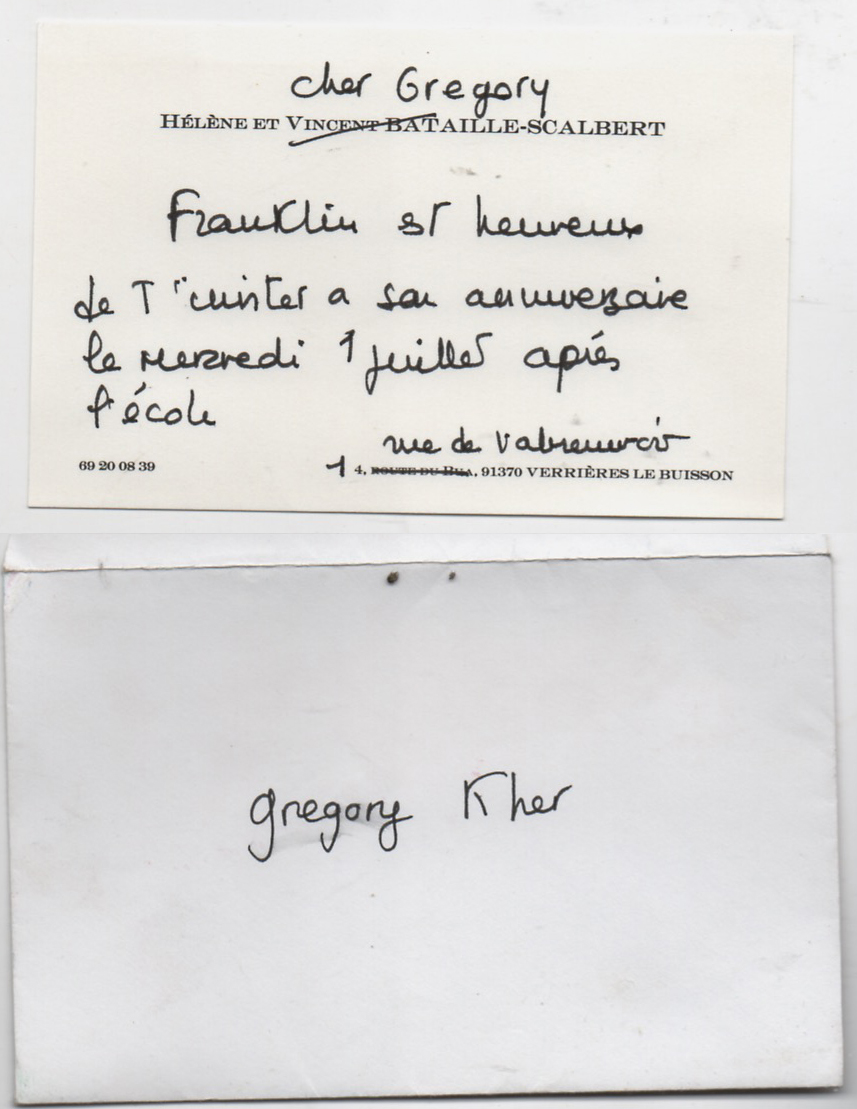 cher Gregory
HÉLÈNE ET VINCENT BATAILLE-SCALBERT
Franklin est heureux
de T'inviter a son anniversaire
le mercredi 1 juillet après
l'école
rue de
69 20 08 39
1 4, ROUTE DU BUA, 91370 VERRIÈRES LE BUISSON
gregory Kher